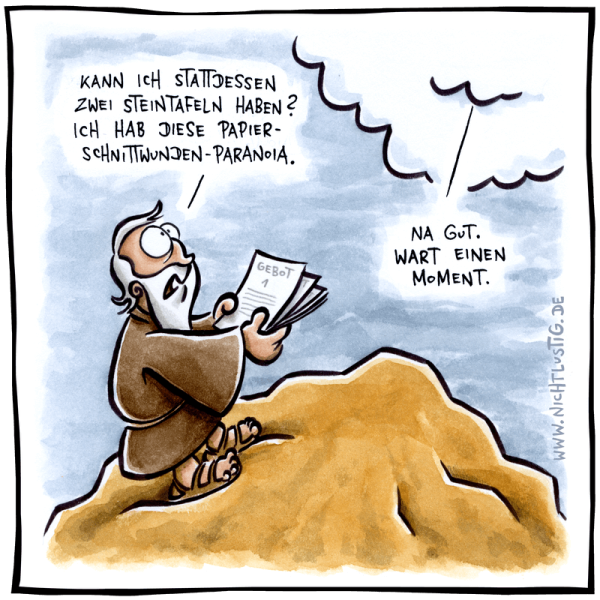 KANN ICH STATTDESSEN
ZWEI STEINTAFELN HABEN?
ICH HAB DIESE PAPIER-
SCHNITTWUNDEN-PARANOIA.
NA GUT.
WART EINEN
MOMENT.
GEBOT
1
WWW.NICHTLUSTIG.DE